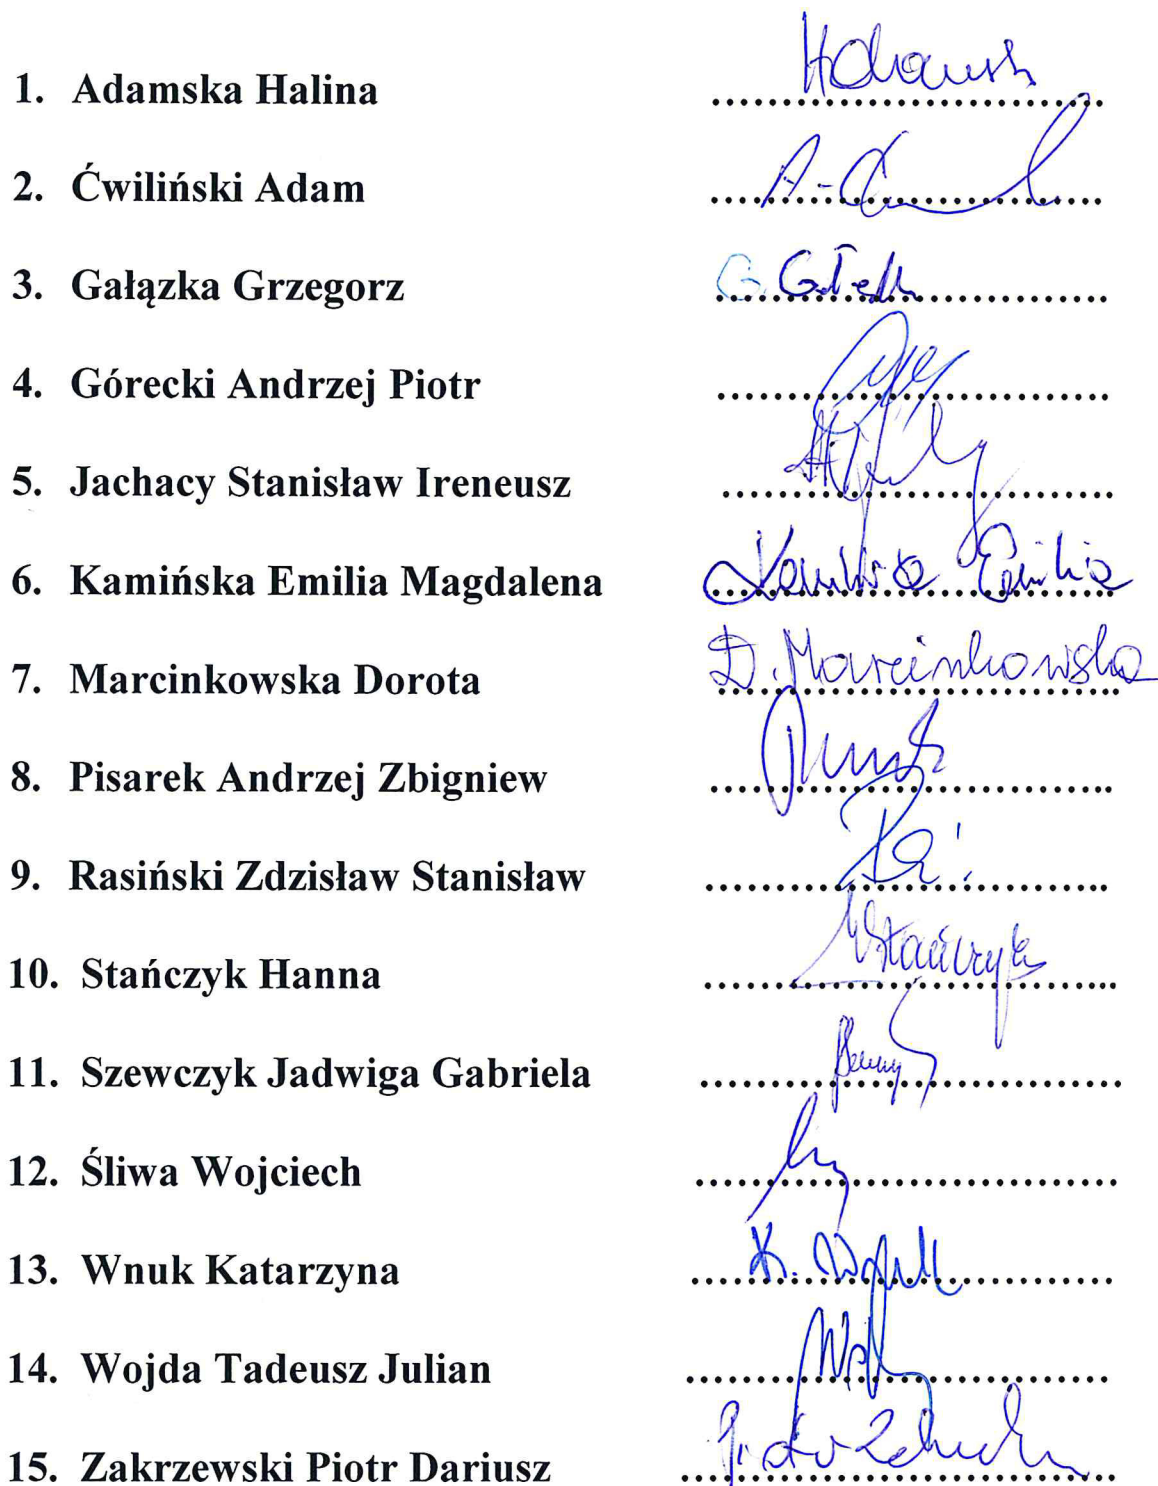 1. Adamska Halina ........................................
2. Ćwiliński Adam ........................................
3. Gałązka Grzegorz ........................................
4. Górecki Andrzej Piotr ........................................
5. Jachacy Stanisław Ireneusz ........................................
6. Kamińska Emilia Magdalena Kamińska Emilia
7. Marcinkowska Dorota D. Marcinkowska
8. Pisarek Andrzej Zbigniew ........................................
9. Rasiński Zdzisław Stanisław ........................................
10. Stańczyk Hanna HStańczyk
11. Szewczyk Jadwiga Gabriela ........................................
12. Śliwa Wojciech ........................................
13. Wnuk Katarzyna K. Wnuk
14. Wojda Tadeusz Julian ........................................
15. Zakrzewski Piotr Dariusz Piotr